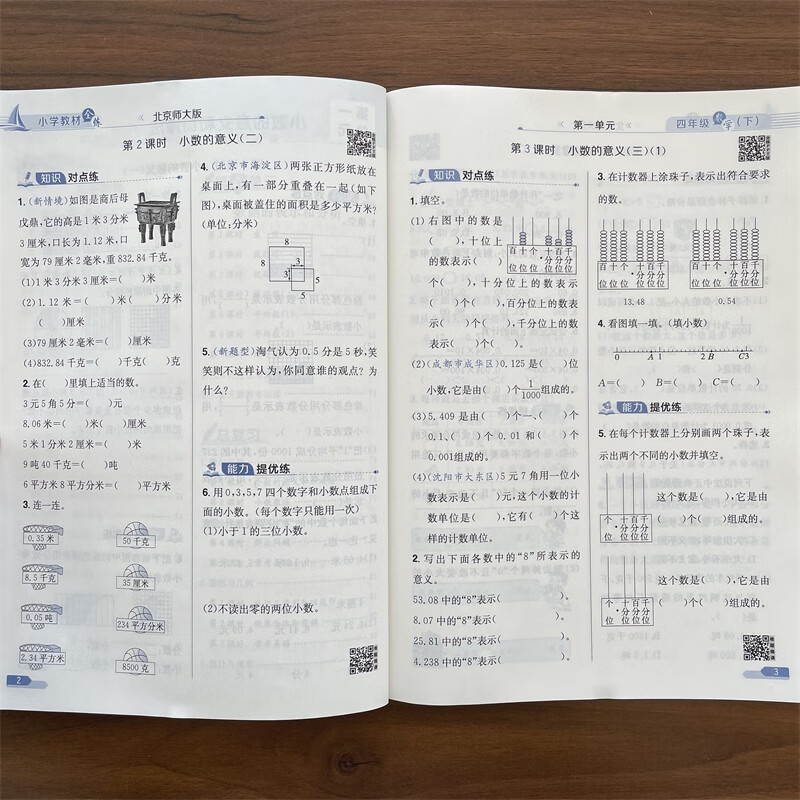 小学教材全练
北京师大版
第2课时 小数的意义(二)
知识 对点练
1.(新情境)如图是商后母
戊鼎,它的高是1米3分米
3厘米,口长为1.12米,口
宽为79厘米2毫米,重832.84千克。
(1)1米3分米3厘米=( )米
(2)1.12米=( )米( )分米
( )厘米
(3)79厘米2毫米=( )厘米
(4)832.84千克=( )千克( )克
2.在( )里填上适当的数。
3元5角5分=( )元
8.06米=( )米( )厘米
5米1分米2厘米=( )米
9吨40千克=( )吨
6平方米8平方分米=( )平方米
3.连一连。
0.35米
50千克
8.5千克
35厘米
0.05吨
234平方分米
2.34平方米
8500克
4.(北京市海淀区)两张正方形纸放在
桌面上,有一部分重叠在一起(如下
图),桌面被盖住的面积是多少平方米?
(单位:分米)
8
8
3
3
5
5
5.(新题型)淘气认为0.5分是5秒,笑
笑则不这样认为,你同意谁的观点?为
什么?
能力 提优练
6.用0,3,5,7四个数字和小数点组成下
面的小数。(每个数字只能用一次)
(1)小于1的三位小数。
(2)不读出零的两位小数。
2
第一单元
四年级 数学(下)
第3课时 小数的意义(三)(1)
知识 对点练
1.填空。
(1)右图中的数是
( ),十位上
的数表示( )
个( ),十分位上的数表示
( )个( ),百分位上的数表
示( )个( ),千分位上的数
表示( )个( )。
百十个.十百千
分分分
位位位位位位
(2)(成都市成华区)0.125是( )位
小数,它是由( )个1/1000组成的。
(3)5.409是由( )个一、( )个
0.1、( )个0.01和( )个
0.001组成的。
(4)(沈阳市大东区)5元7角用一位小
数表示是( )元,这个小数的计
数单位是( ),它有( )个这
样的计数单位。
2.写出下面各数中的“8”所表示的
意义。
53.08中的“8”表示( )。
8.07中的“8”表示( )。
25.81中的“8”表示( )。
4.238中的“8”表示( )。
3.在计数器上涂珠子,表示出符合要求
的数。
百十个.十百千
分分分
位位位位位位
13.48
百十个.十百千
分分分
位位位位位位
0.54
4.看图填一填。(填小数)
0 A 1 2 B C 3
A=( ) B=( ) C=( )
能力 提优练
5.在每个计数器上分别画两个珠子,表
示出两个不同的小数并填空。
这个数是( ),它是由
( )个( )组成的。
个.十百千
分分分
位位位位
这个数是( ),它是由
( )个( )组成的。
个.十百千
分分分
位位位位
3